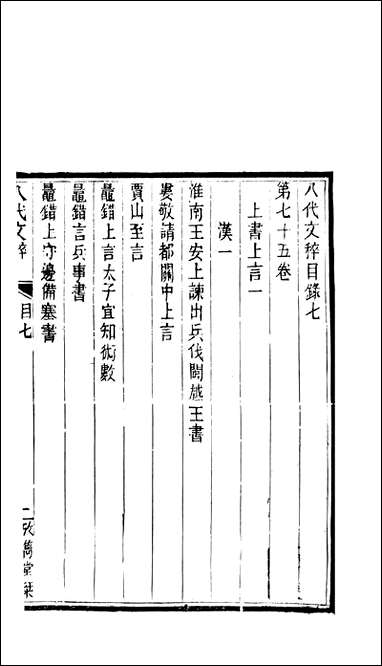 八代文粹目錄七
第七十五卷
上書上言一
漢一
淮南王安上諫出兵伐閩越王書
婁敬請都關中上言
賈山至言
鼂錯上言太子宜知術數
鼂錯言兵事書
鼂錯上守邊備塞書
八代文粹
目七